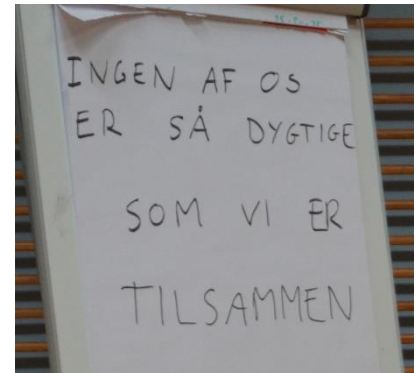 INGEN AF OS
ER SÅ DYGTIGE
SOM VI ER
TILSAMMEN